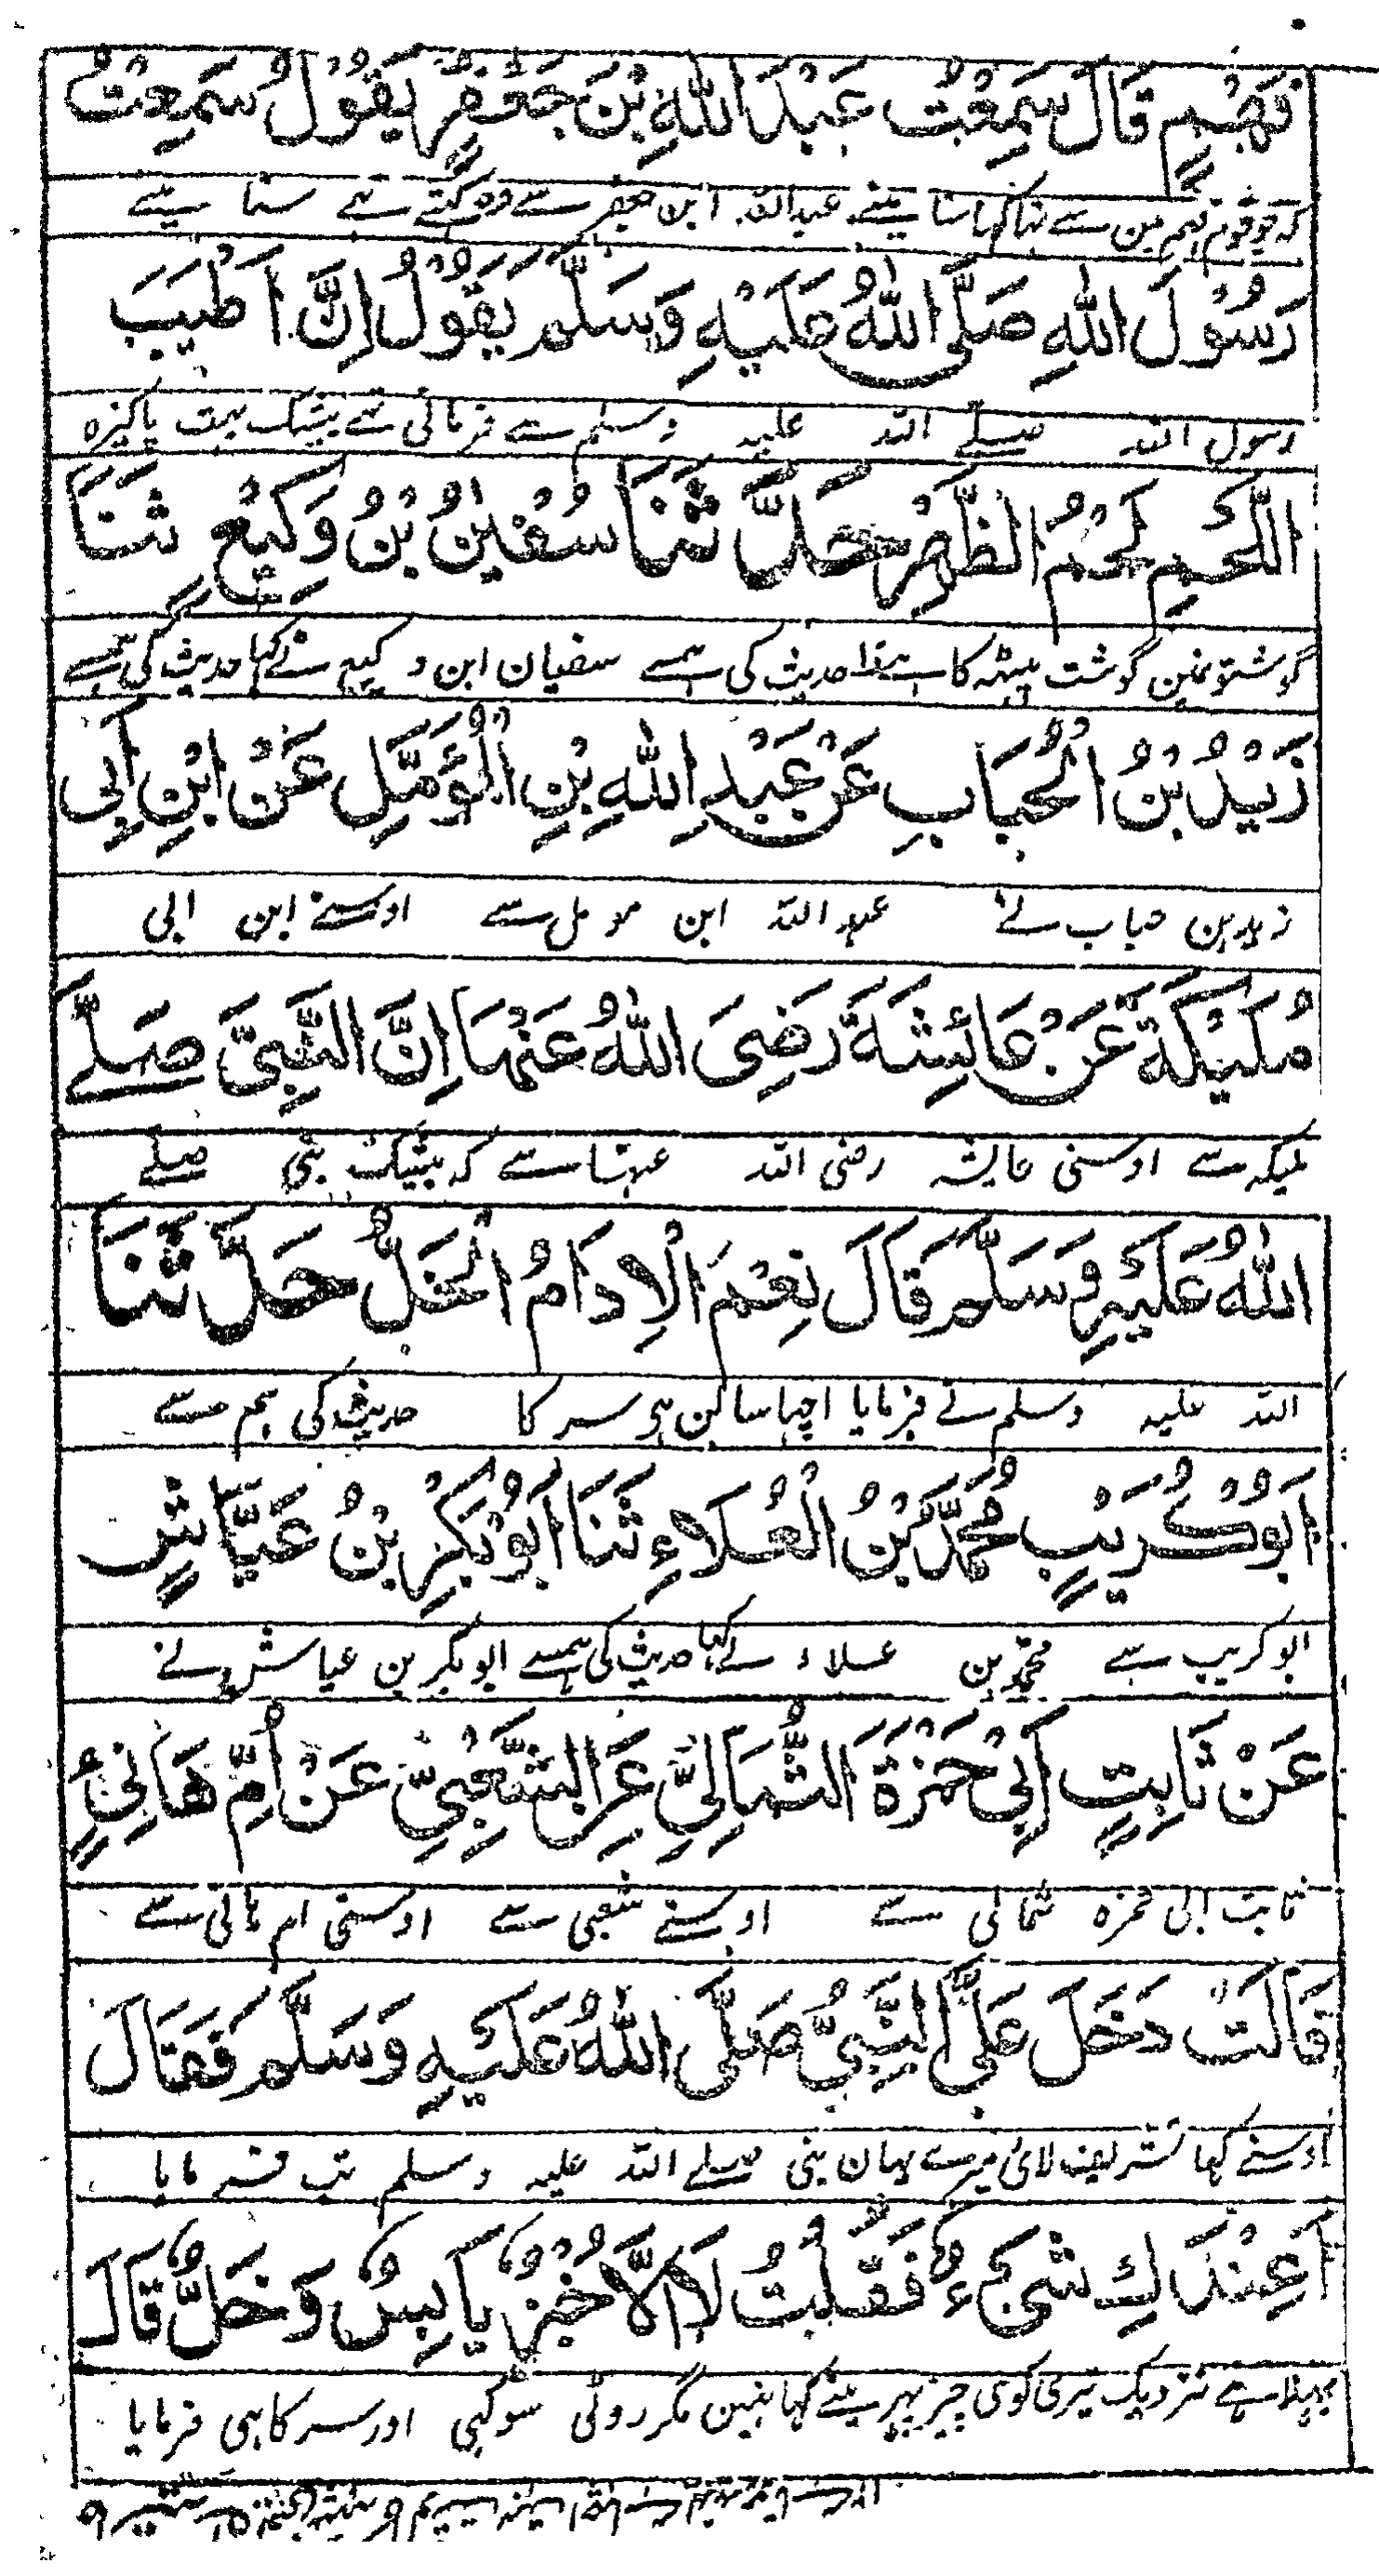 فَهْمٍ قَالَ سَمِعْتُ عَبْدَ اللّٰهِ بْنَ جَعْفَرٍ يَقُوْلُ سَمِعْتُ
کہ جو قوم فہم مین سے تہا کہا سنا مینے عبد اللہ ابن جعفر سے وہ کہتے تہے سنا مینے
رَسُوْلَ اللّٰهِ صَلَّى اللّٰهُ عَلَيْهِ وَسَلَّمَ يَقُوْلُ اِنَّ اَطْيَبَ
رسول اللہ صلے اللہ علیہ وسلم سے فرماتی تہے بیشک بہت پاکیزہ
اللَّحْمِ لَحْمُ الظَّهْرِ حَدَّثَنَا سُفْيٰنُ بْنُ وَكِيْعٍ ثَنَا
گوشتونمین گوشت پیٹہہ کا ہے حدیث کی ہمسے سفیان ابن وکیع نے کہا حدیث کی ہمسے
زَيْدُ بْنُ الْحُبَابِ عَنْ عَبْدِ اللّٰهِ بْنِ الْمُؤَمَّلِ عَنْ ابْنِ اَبِى
زید بن حباب نے عبد اللہ ابن مومل سے اوسنے ابن ابی
مُلَيْكَةَ عَنْ عَائِشَةَ رَضِىَ اللّٰهُ عَنْهَا اِنَّ النَّبِىَّ صَلَّے
ملیکہ سے اوسنی عایشہ رضی اللہ عنہا سے کہ بیشک نبی صلے
اللّٰهُ عَلَيْهِ وَسَلَّمَ قَالَ نِعْمَ الْاِدَامُ الْخَلُّ حَدَّثَنَا
اللہ علیہ وسلم نے فرمایا اچہا سالن ہی سرکا حدیث کی ہم سے
اَبُوْ كُرَيْبٍ مُحَمَّدُ بْنُ الْعَلَاءِ ثَنَا اَبُوْ بَكْرِ بْنُ عَيَّاشٍ
ابو کریب سے محمد بن علاء نے کہا حدیث کی ہمسے ابو بکر بن عیاش نے
عَنْ ثَابِتٍ اَبِىْ حَمْزَةَ الثُّمَالِىِّ عَنِ الشَّعْبِىِّ عَنْ اُمِّ هَانِىءٍ
ثابت ابی حمزہ ثمالی سے اوسنے شعبی سے اوسنی ام ہانی سے
قَالَتْ دَخَلَ عَلَىَّ النَّبِىُّ صَلَّى اللّٰهُ عَلَيْهِ وَسَلَّمَ فَقَالَ
اوسنے کہا تشریف لائی میرے یہان نبی صلے اللہ علیہ وسلم تب فرمایا
اَعِنْدَكِ شَىْءٌ فَقُلْتُ لَا اِلَّا خُبْزٌ يَابِسٌ وَخَلٌّ قَالَ
بہلا ہے نزدیک تیری کوی چیز پہر مینے کہا نہین مگر روٹی سوکہی اور سرکا ہی فرمایا